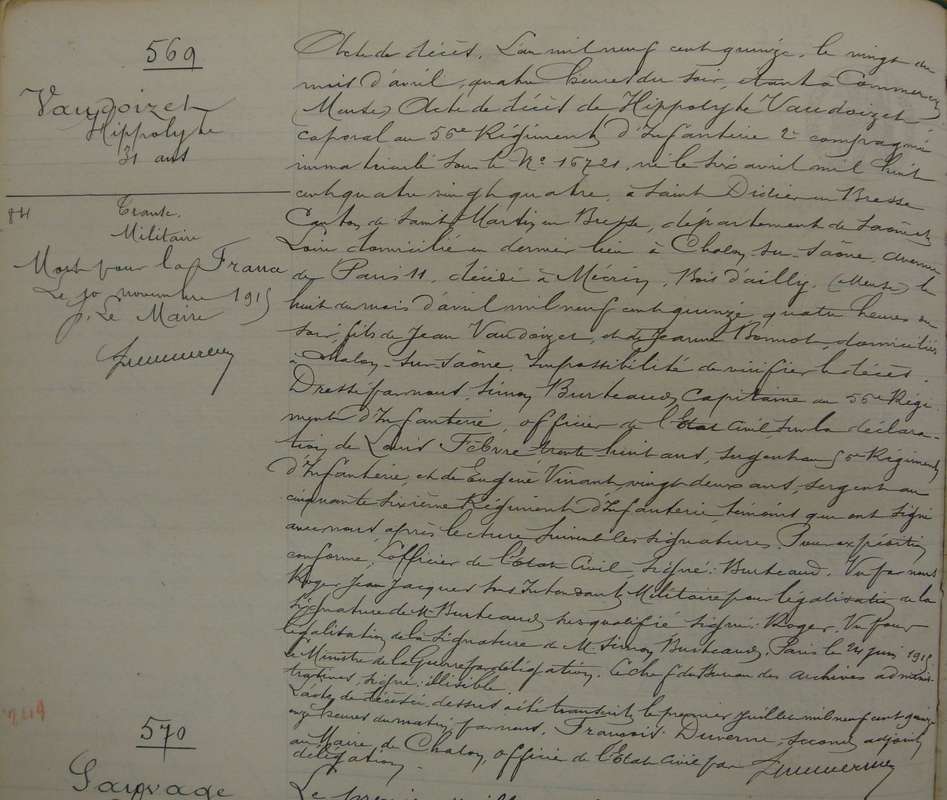 569
Vaudoizet
Hippolyte
31 ans
84
Transc.
Militaire
Mort pour la France
Le 10 novembre 1915
p. Le Maire
Acte de décès. L'an mil neuf cent quinze, le vingt du
mois d'avril, quatre heures du soir, étant à Commercy
(Meuse) Acte de décès de Hippolyte Vaudoizet
caporal au 56e Régiment d'Infanterie 2e compagnie
immatriculé sous le No 16721, né le six avril mil huit
cent quatre vingt quatre, à Saint Didier en Bresse
Canton de Saint Martin en Bresse, département de Saône et
Loire domicilié en dernier lieu à Chalon-sur-Saône, avenue
de Paris 11, décédé à Mécrin, Bois d'ailly, (Meuse) le
huit du mois d'avril mil neuf cent quinze, quatre heures du
soir, fils de Jean Vaudoizet, et de Jeanne Bonnot domiciliés
à Chalon-sur-Saône. Impossibilité de vérifier le décès.
Dressé par nous, Simon Burteaud, Capitaine au 56e Régi
ment d'Infanterie, officier de l'Etat Civil, sur la déclara-
tion de Louis Fèbvre trente huit ans, sergent au 56e Régiment
d'Infanterie, et de Eugène Vinant vingt deux ans, sergent au
cinquante sixième Régiment d'Infanterie, témoins qui ont signé
avec nous, après lecture. Suivent les signatures. Pour expédition
conforme, L'officier de l'Etat Civil, signé: Burteaud. Vu par nous
Roger Jean Jacques Sous Intendant Militaire pour légalisation de la
signature de Mr Burteaud susqualifié signé: Roger. Vu pour
légalisation de la signature de Mr Simon Burteaud, Paris le 24 juin 1915
le Ministre de la Guerre par délégation, le chef du Bureau des archives adminis-
tratives, signé: illisible.
L'acte de décès ci-dessus a été transcrit le premier juillet mil neuf cent quinze
onze heures du matin, par nous, François Duverne, second adjoint
au Maire de Chalon, officier de l'Etat Civil par
délégation.
249
570
Sauvage